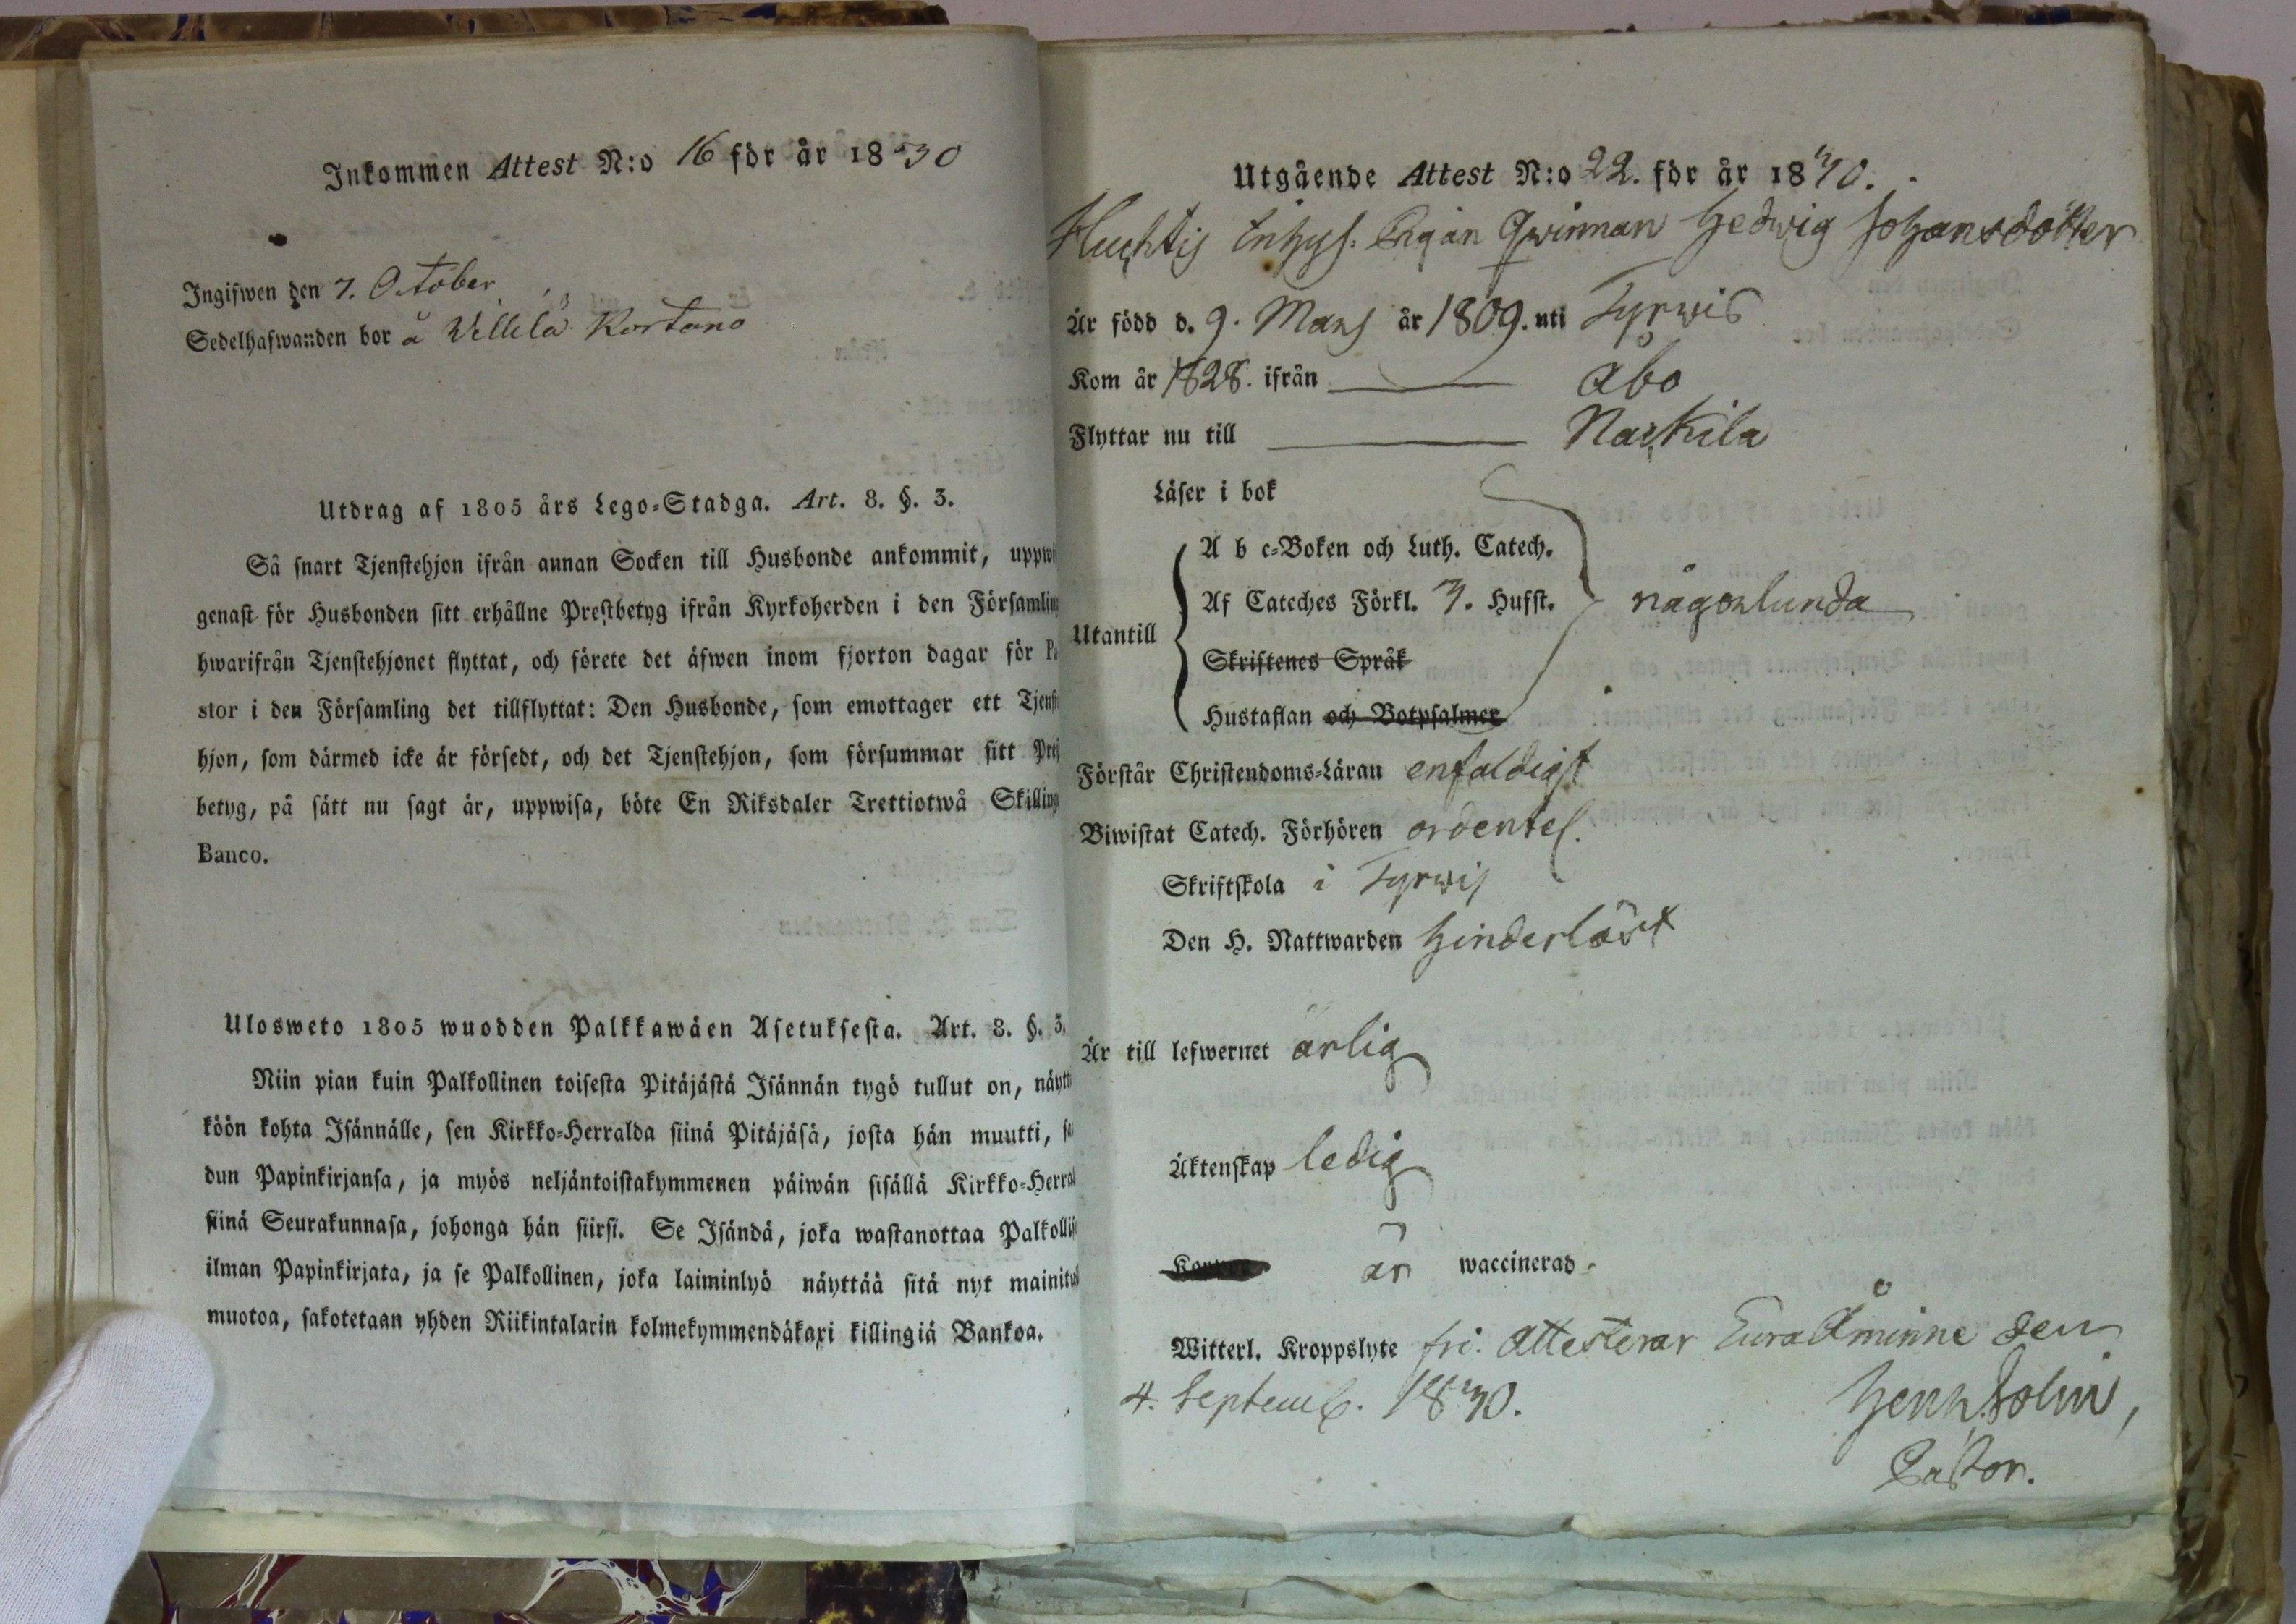 Inkommen Attest N:o 16 för år 1830
Ingifwen den 7. October
Sedelhafwanden bor å Willilä Kortano
Utdrag af 1805 års Lego-Stadga. Art. 8. §. 3.
Så snart Tjenstehjon ifrån annan Socken till Husbonde ankommit, uppwi
genast för Husbonden sitt erhållne Prestbetyg ifrån Kyrkoherden i den Församling
hwarifrån Tjenstehjonet flyttat, och förete det äfwen inom fjorton dagar för Pa
stor i den Församling det tillflyttat: Den Husbonde, som emottager ett Tjenst
hjon, som därmed icke är försedt, och det Tjenstehjon, som försummar sitt Prest
betyg, på sätt nu sagt är, uppwisa, böte En Riksdaler Trettiotwå Skilling
Banco.
Ulosweto 1805 wuodden Palkkawäen Asetuksesta. Art. 8. §. 3.
Niin pian kuin Palkollinen toisesta Pitäjästä Isännän tygö tullut on, näytt
köön kohta Isännälle, sen Kirkko-Herralda siinä Pitäjäsä, josta hän muutti, sa
dun Papinkirjansa, ja myös neljäntoistakymmenen päiwän sisällä Kirkko-Herral
siinä Seurakunnasa, johonga hän siirsi. Se Isändä, joka wastanottaa Palkollis
ilman Papinkirjata, ja se Palkollinen, joka laiminlyö näyttää sitä nyt mainitus
muotoa, sakotetaan yhden Riikintalarin kolmekymmendäkaxi killingiä Bankoa.
Utgående Attest N:o 22. för år 1830.
Huchtis Inhys. Pigan Qwinnan Hedwig Johansdotter
Är född d. 9. Mars år 1809. uti Tyrwis
Kom år 1828. ifrån Åbo
Flyttar nu till Nackila
Läser i bok
A b c-Boken och Luth. Catech.
Af Cateches Förkl. 3. Hufst. någorlunda
Utantill
Skriftenes Språk
Hustaflan och Botpsalmer
Förstår Christendoms-Läran enfaldigt
Biwistat Catech. Förhören ordentel.
Skriftskola i Tyrwis
Den H. Nattwarden hinderlöst
Är till lefwernet ärlig
Äktenskap ledig
är waccinerad.
Witterl. Kroppslyte fri. Attesterar Eura Åminne den
4. Septemb. 1830. Henr. Solin,
Pastor.